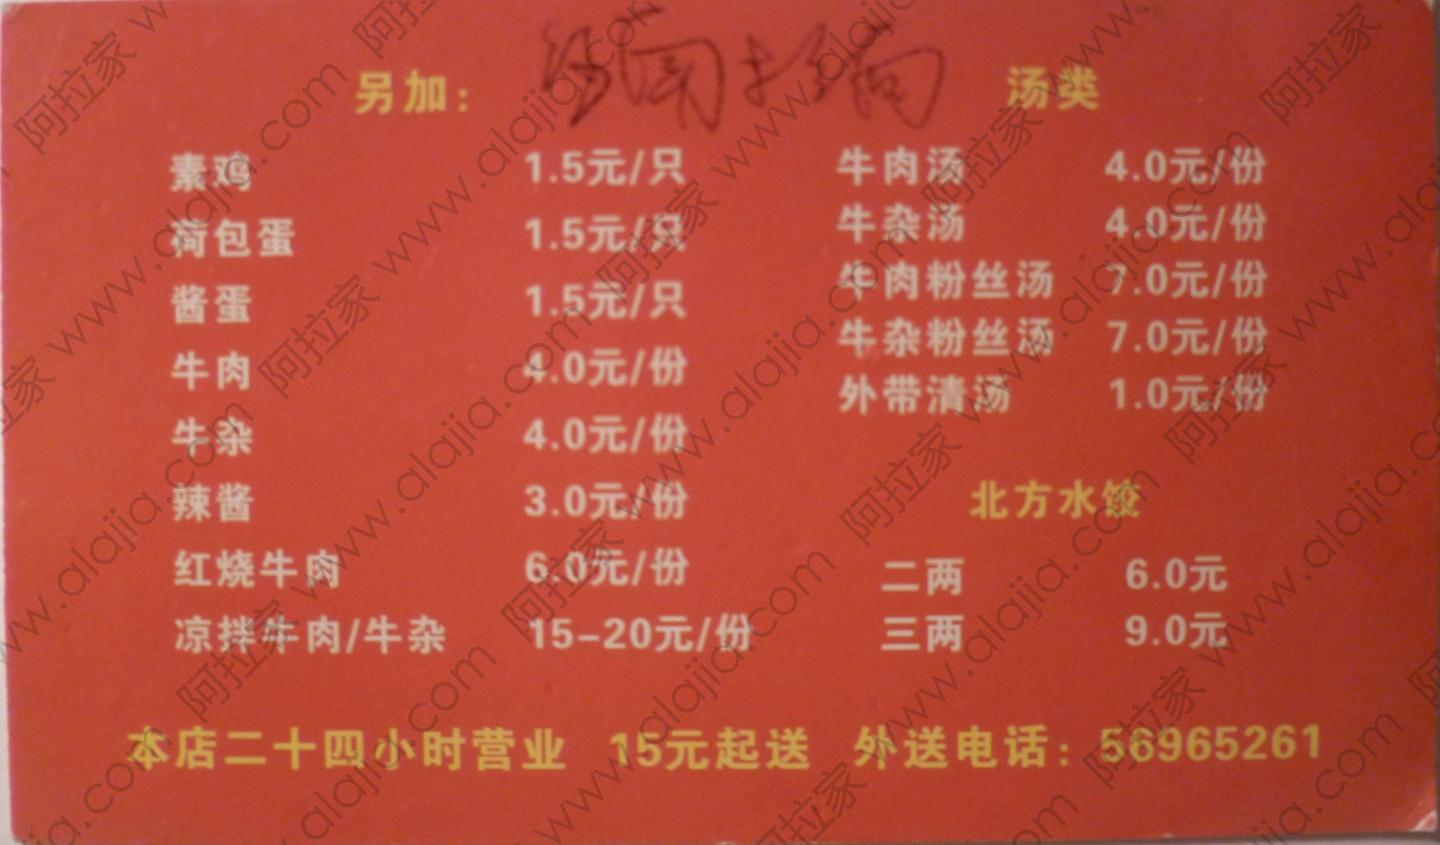 另加：
素鸡 1.5元/只
荷包蛋 1.5元/只
酱蛋 1.5元/只
牛肉 4.0元/份
牛杂 4.0元/份
辣酱 3.0元/份
红烧牛肉 6.0元/份
凉拌牛肉/牛杂 15-20元/份
汤类
牛肉汤 4.0元/份
牛杂汤 4.0元/份
牛肉粉丝汤 7.0元/份
牛杂粉丝汤 7.0元/份
外带清汤 1.0元/份
北方水饺
二两 6.0元
三两 9.0元
本店二十四小时营业 15元起送 外送电话：56965261
阿拉家 www.alajia.com